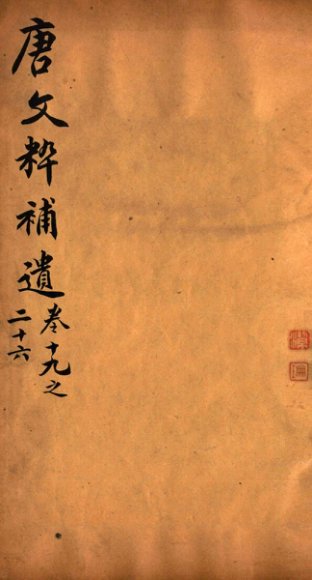 唐文粹補遺
卷十九之
二十六